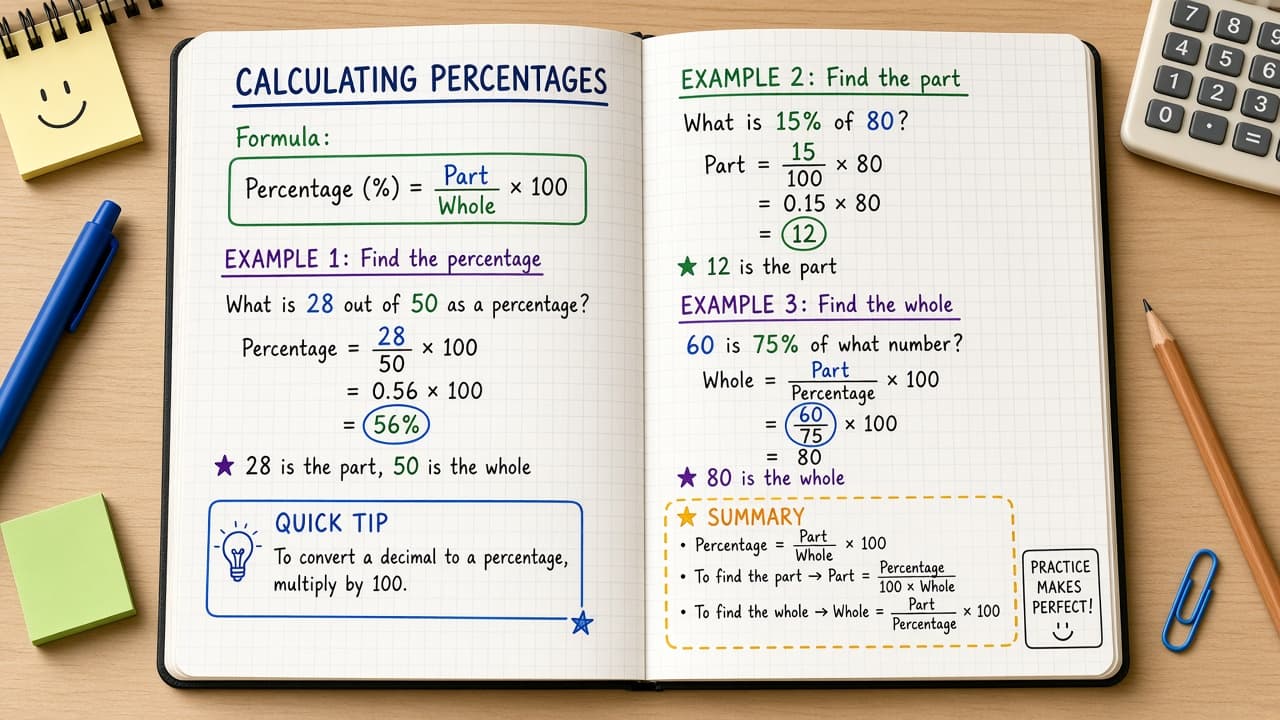 CALCULATING PERCENTAGES
Formula:
Percentage (%) = Part/Whole × 100
EXAMPLE 1: Find the percentage
What is 28 out of 50 as a percentage?
Percentage = 28/50 × 100
= 0.56 × 100
= 56%
★ 28 is the part, 50 is the whole
QUICK TIP
To convert a decimal to a percentage,
multiply by 100.
EXAMPLE 2: Find the part
What is 15% of 80?
Part = 15/100 × 80
= 0.15 × 80
= 12
★ 12 is the part
EXAMPLE 3: Find the whole
60 is 75% of what number?
Whole = Part/Percentage × 100
= 60/75 × 100
= 80
★ 80 is the whole
★ SUMMARY
• Percentage = Part/Whole × 100
• To find the part → Part = Percentage/100 × Whole
• To find the whole → Whole = Part/Percentage × 100
PRACTICE
MAKES
PERFECT!
7 8 9
4 5 6
1 2 3
0 . =